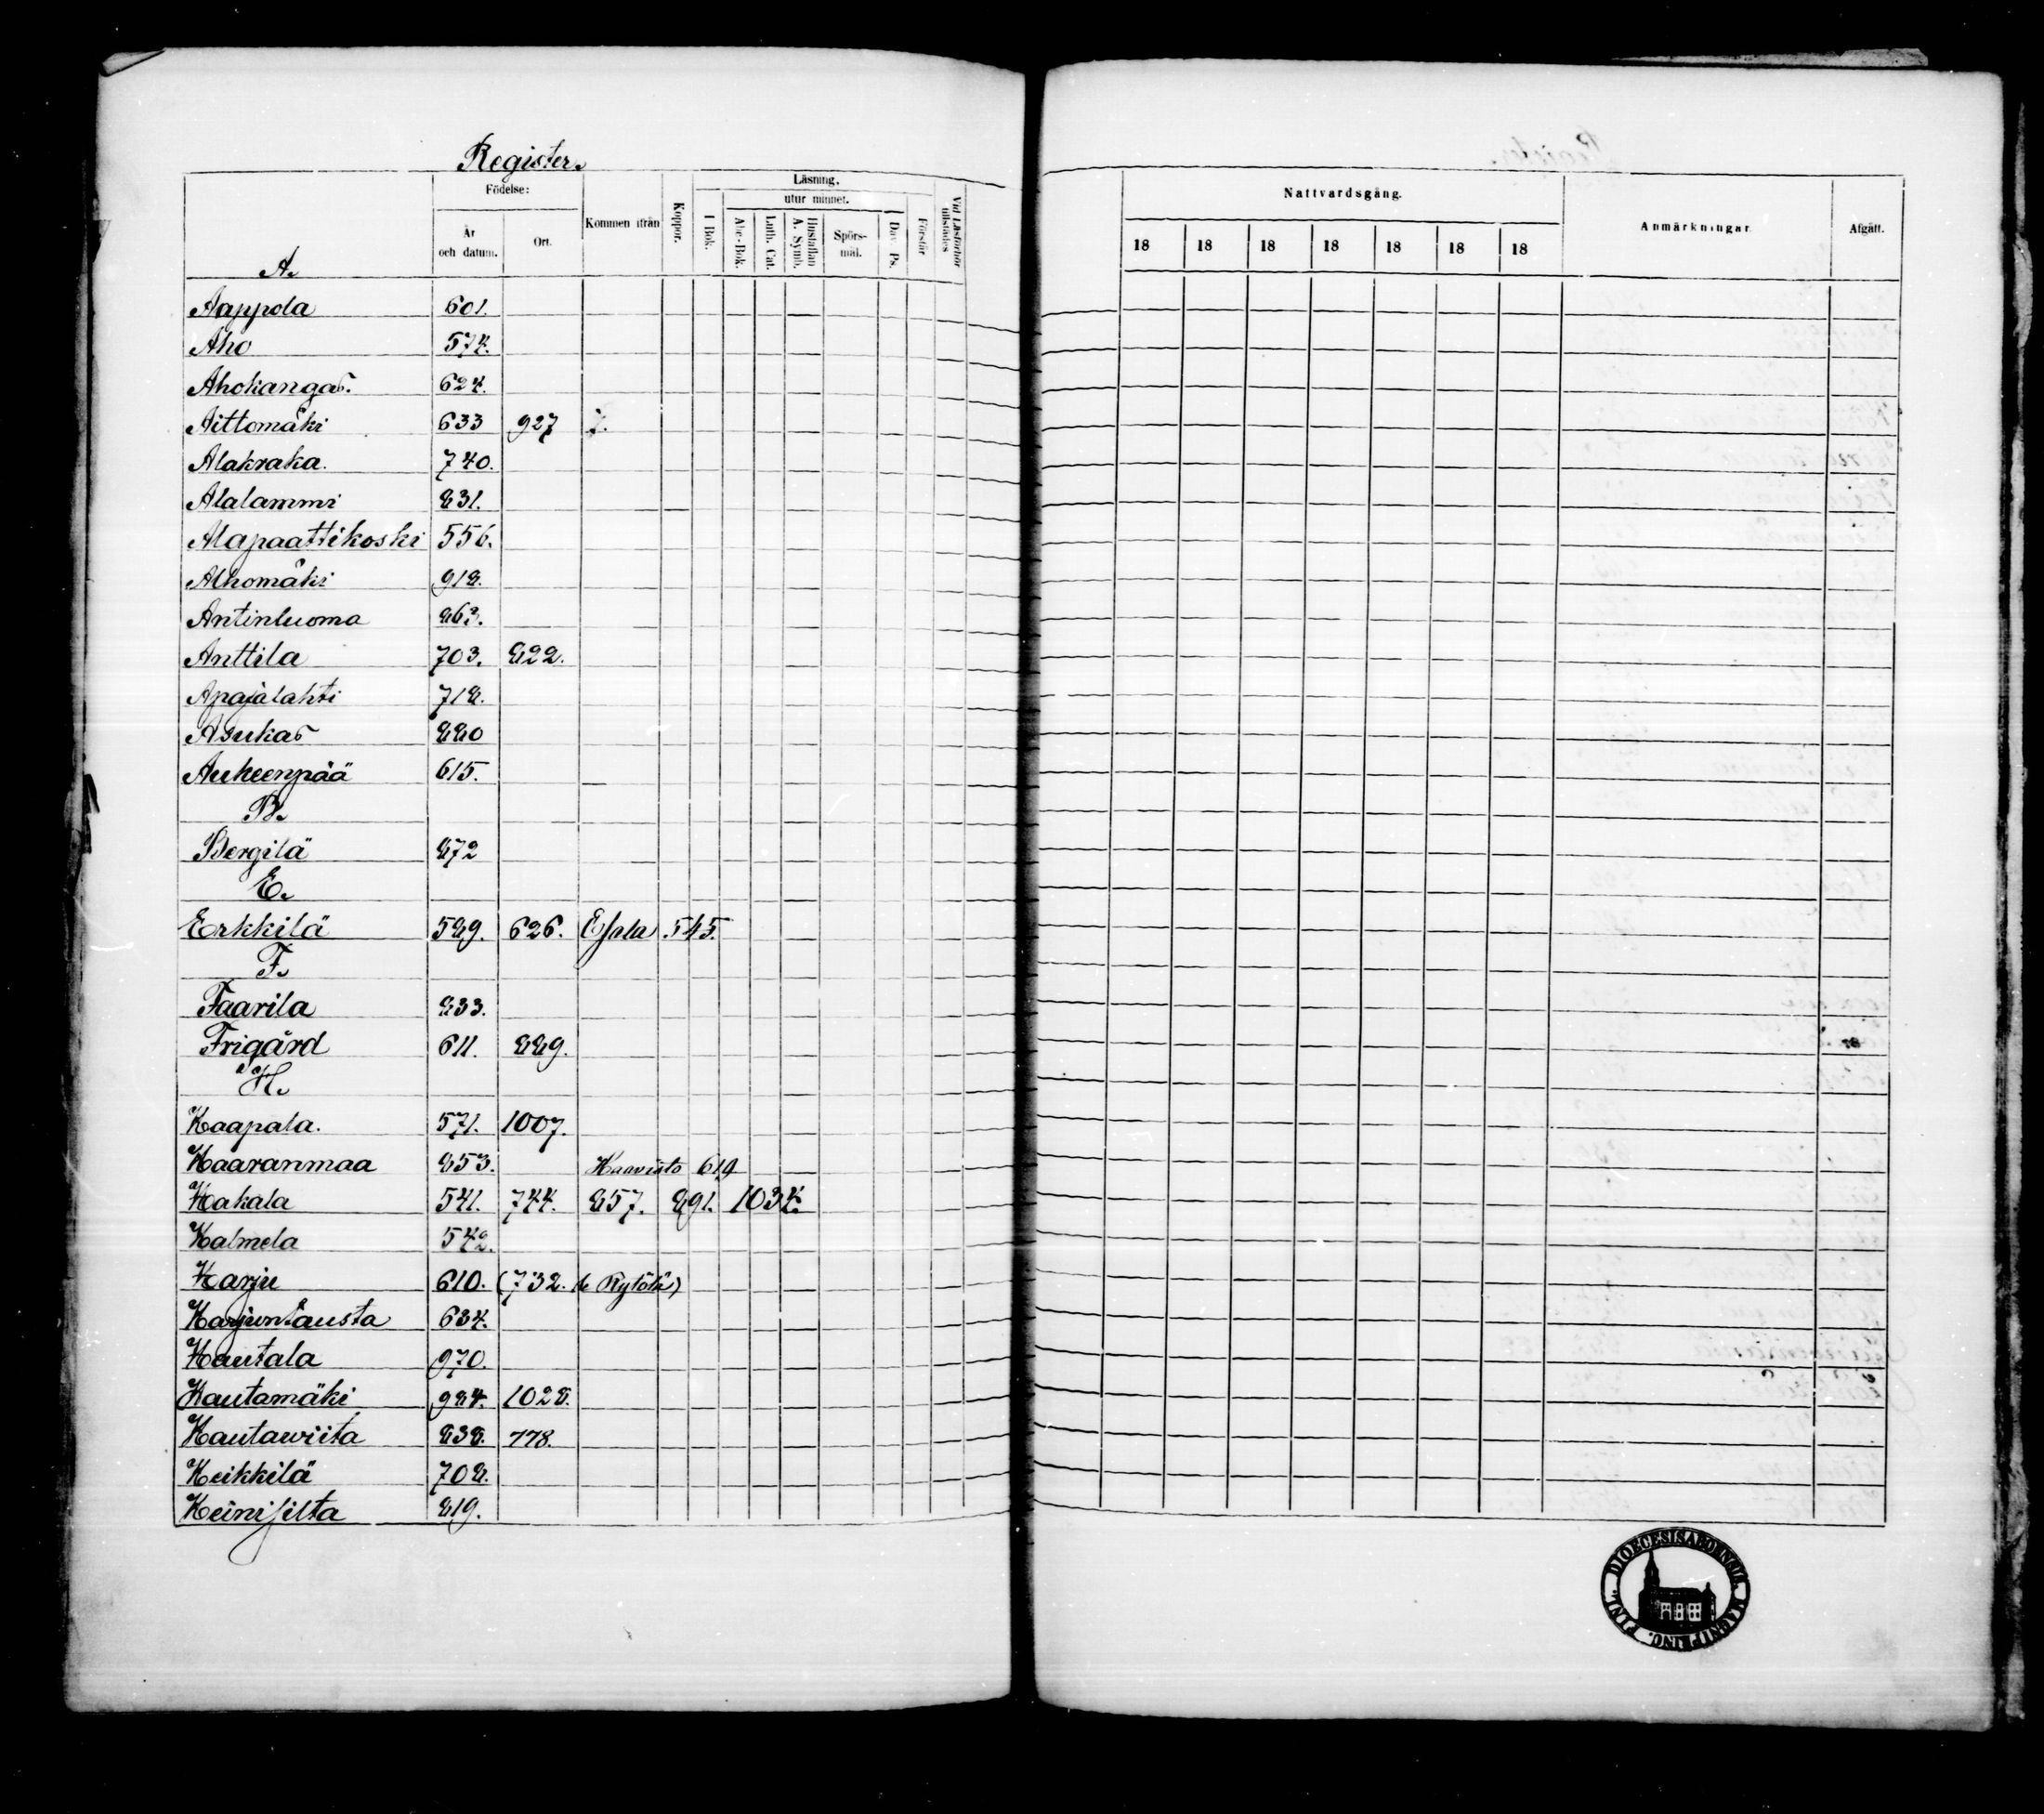 Register.
Födelse:
År och datum.
Ort.
Kommen ifrån
Koppor.
Läsning,
I Bok.
utur minnet.
Abc-Bok.
Luth. Cat.
Hustaflan A. Symb.
Spörs-mål.
Dav. Ps.
Förstår
Vid Läsförhör tillstädes
Nattvardsgång.
18 18 18 18 18 18 18
Anmärkningar.
Afgått.
A.
Aappola 601.
Aho 574.
Ahokangas. 624.
Aittomäki 633 927
Alakraka. 740.
Alalammi 831.
Alapaattikoski 556.
Alhomäki 918.
Antinluoma 863.
Anttila 703. 822.
Apajalahti 718.
Asukas 880
Aukeenpää 615.
B.
Bergilä 872
E.
Erkkilä 589. 626. Esala 545.
F.
Faarila 833.
Frigård 611. 889.
H.
Haapala. 571. 1007.
Haaranmaa 853. Haavisto 619
Hakala 541. 744. 857. 891. 1034.
Halmela 542.
Harju 610. (732. Rytölä)
Harjuntausta 634.
Hautala 970.
Hautamäki 984. 1028.
Hautawiita 838. 778.
Heikkilä 708.
Heinisilta 819.
DIOECESIS ABOENSIS. MAGNI PRINC. FINL.